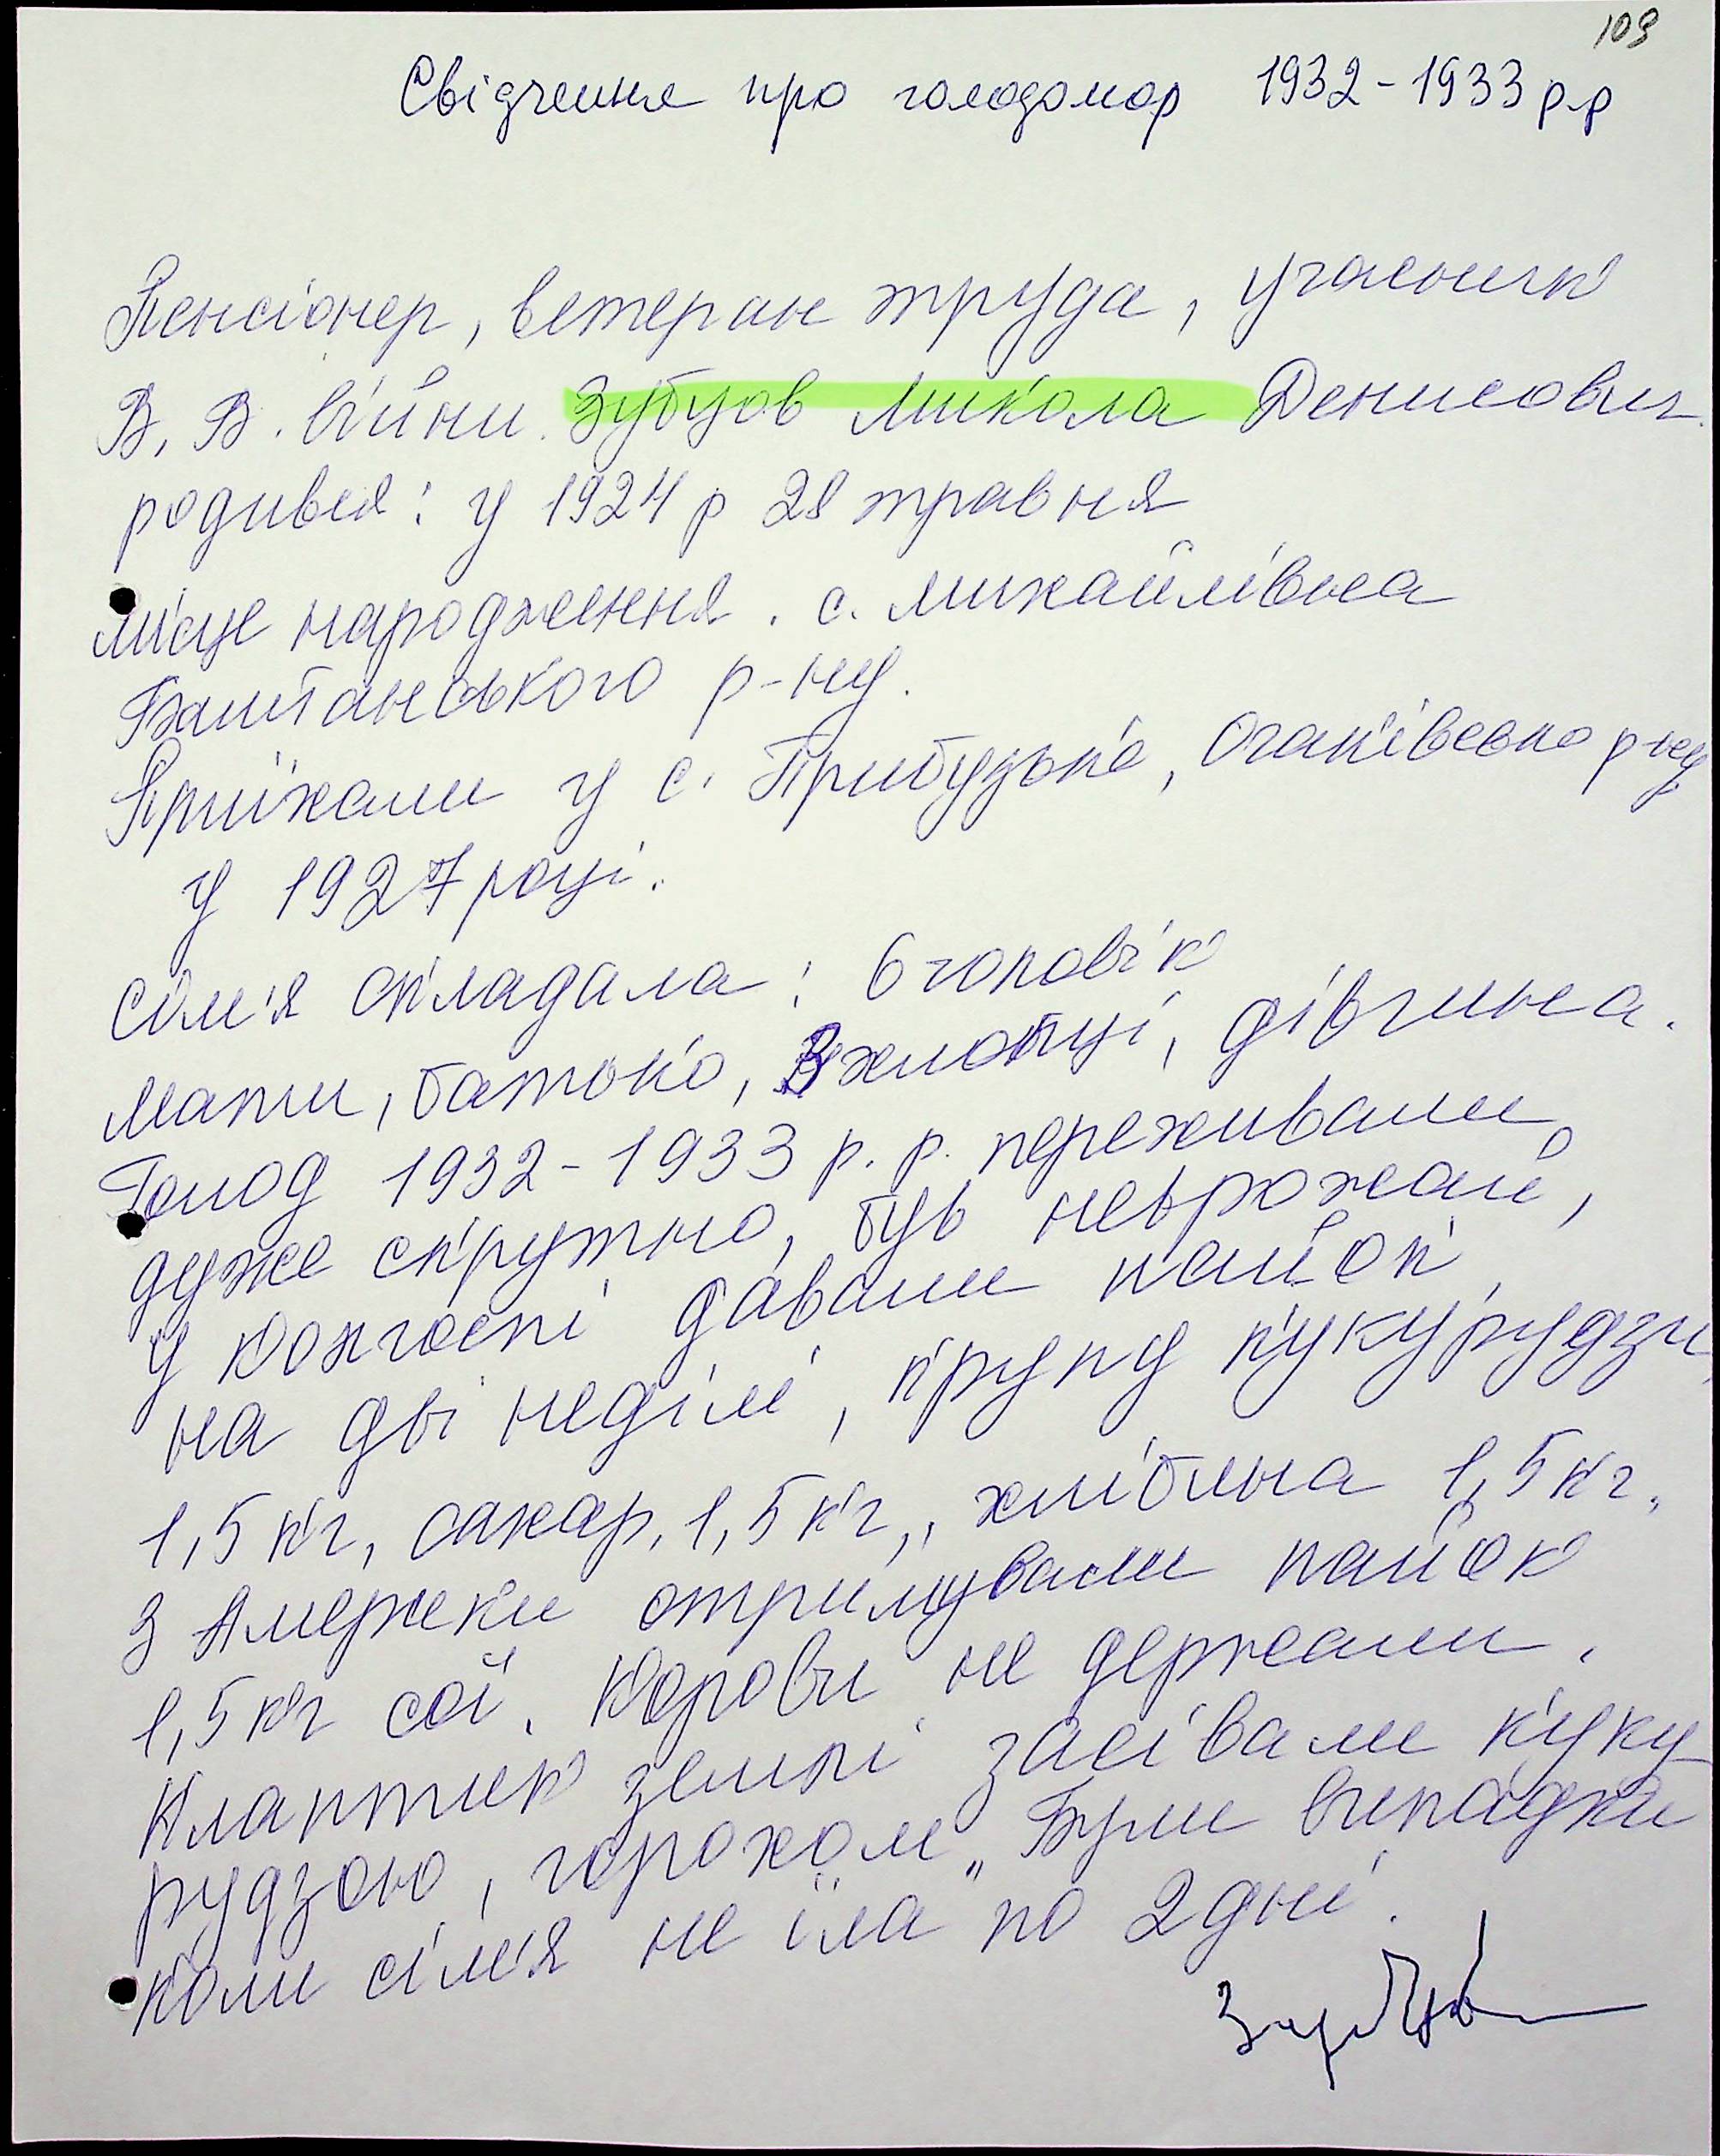 109
Свідчення про голодомор 1932-1933 р.р
Пенсіонер, ветеран труда, учасник
В. В. війни. Зубцов Микола Денисович.
родився: у 1924 р 28 травня
місце народження. с. Михайлівка
Баштанського р-ну.
Приїхали у с. Прибузьке, Очаківсько р-ну
у 1927 році.
сім'я складала: 6 чоловік
мати, батько, 3 хлопці, дівчина.
Голод 1932-1933 р. р. переживали
дуже скрутно, був неврожай,
у колгоспі давали пайок
на дві неділі, крупу кукурудзи
1,5 кг, сахар, 1,5 кг,, хлібина 1,5 кг.
З Америки отримували пайок
1,5 кг сої. Корови не держали.
Клаптик землі засівали куку-
рудзою, горохом,, Були випадки
коли сім'я не їла" по 2 дні.